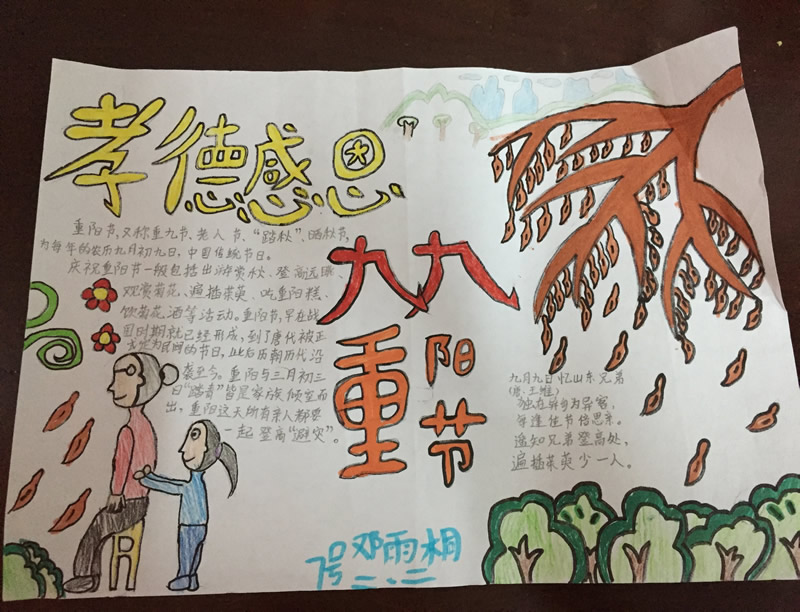 孝德感恩
重阳节,又称重九节、老人节、“踏秋”、晒秋节,
为每年的农历九月初九日,中国传统节日。
庆祝重阳节一般包括出游赏秋、登高远眺、
观赏菊花、遍插茱萸、吃重阳糕、
饮菊花酒等活动。重阳节,早在战
国时期就已经形成,到了唐代被正
式定为民间的节日,此后历朝历代沿
袭至今。重阳与三月初三
日“踏青”皆是家族倾室而
出,重阳这天所有亲人都要
一起登高“避灾”。
九九
重阳节
九月九日忆山东兄弟
(唐.王维)
独在异乡为异客,
每逢佳节倍思亲。
遥知兄弟登高处,
遍插茱萸少一人。
7号邓雨相
二.二